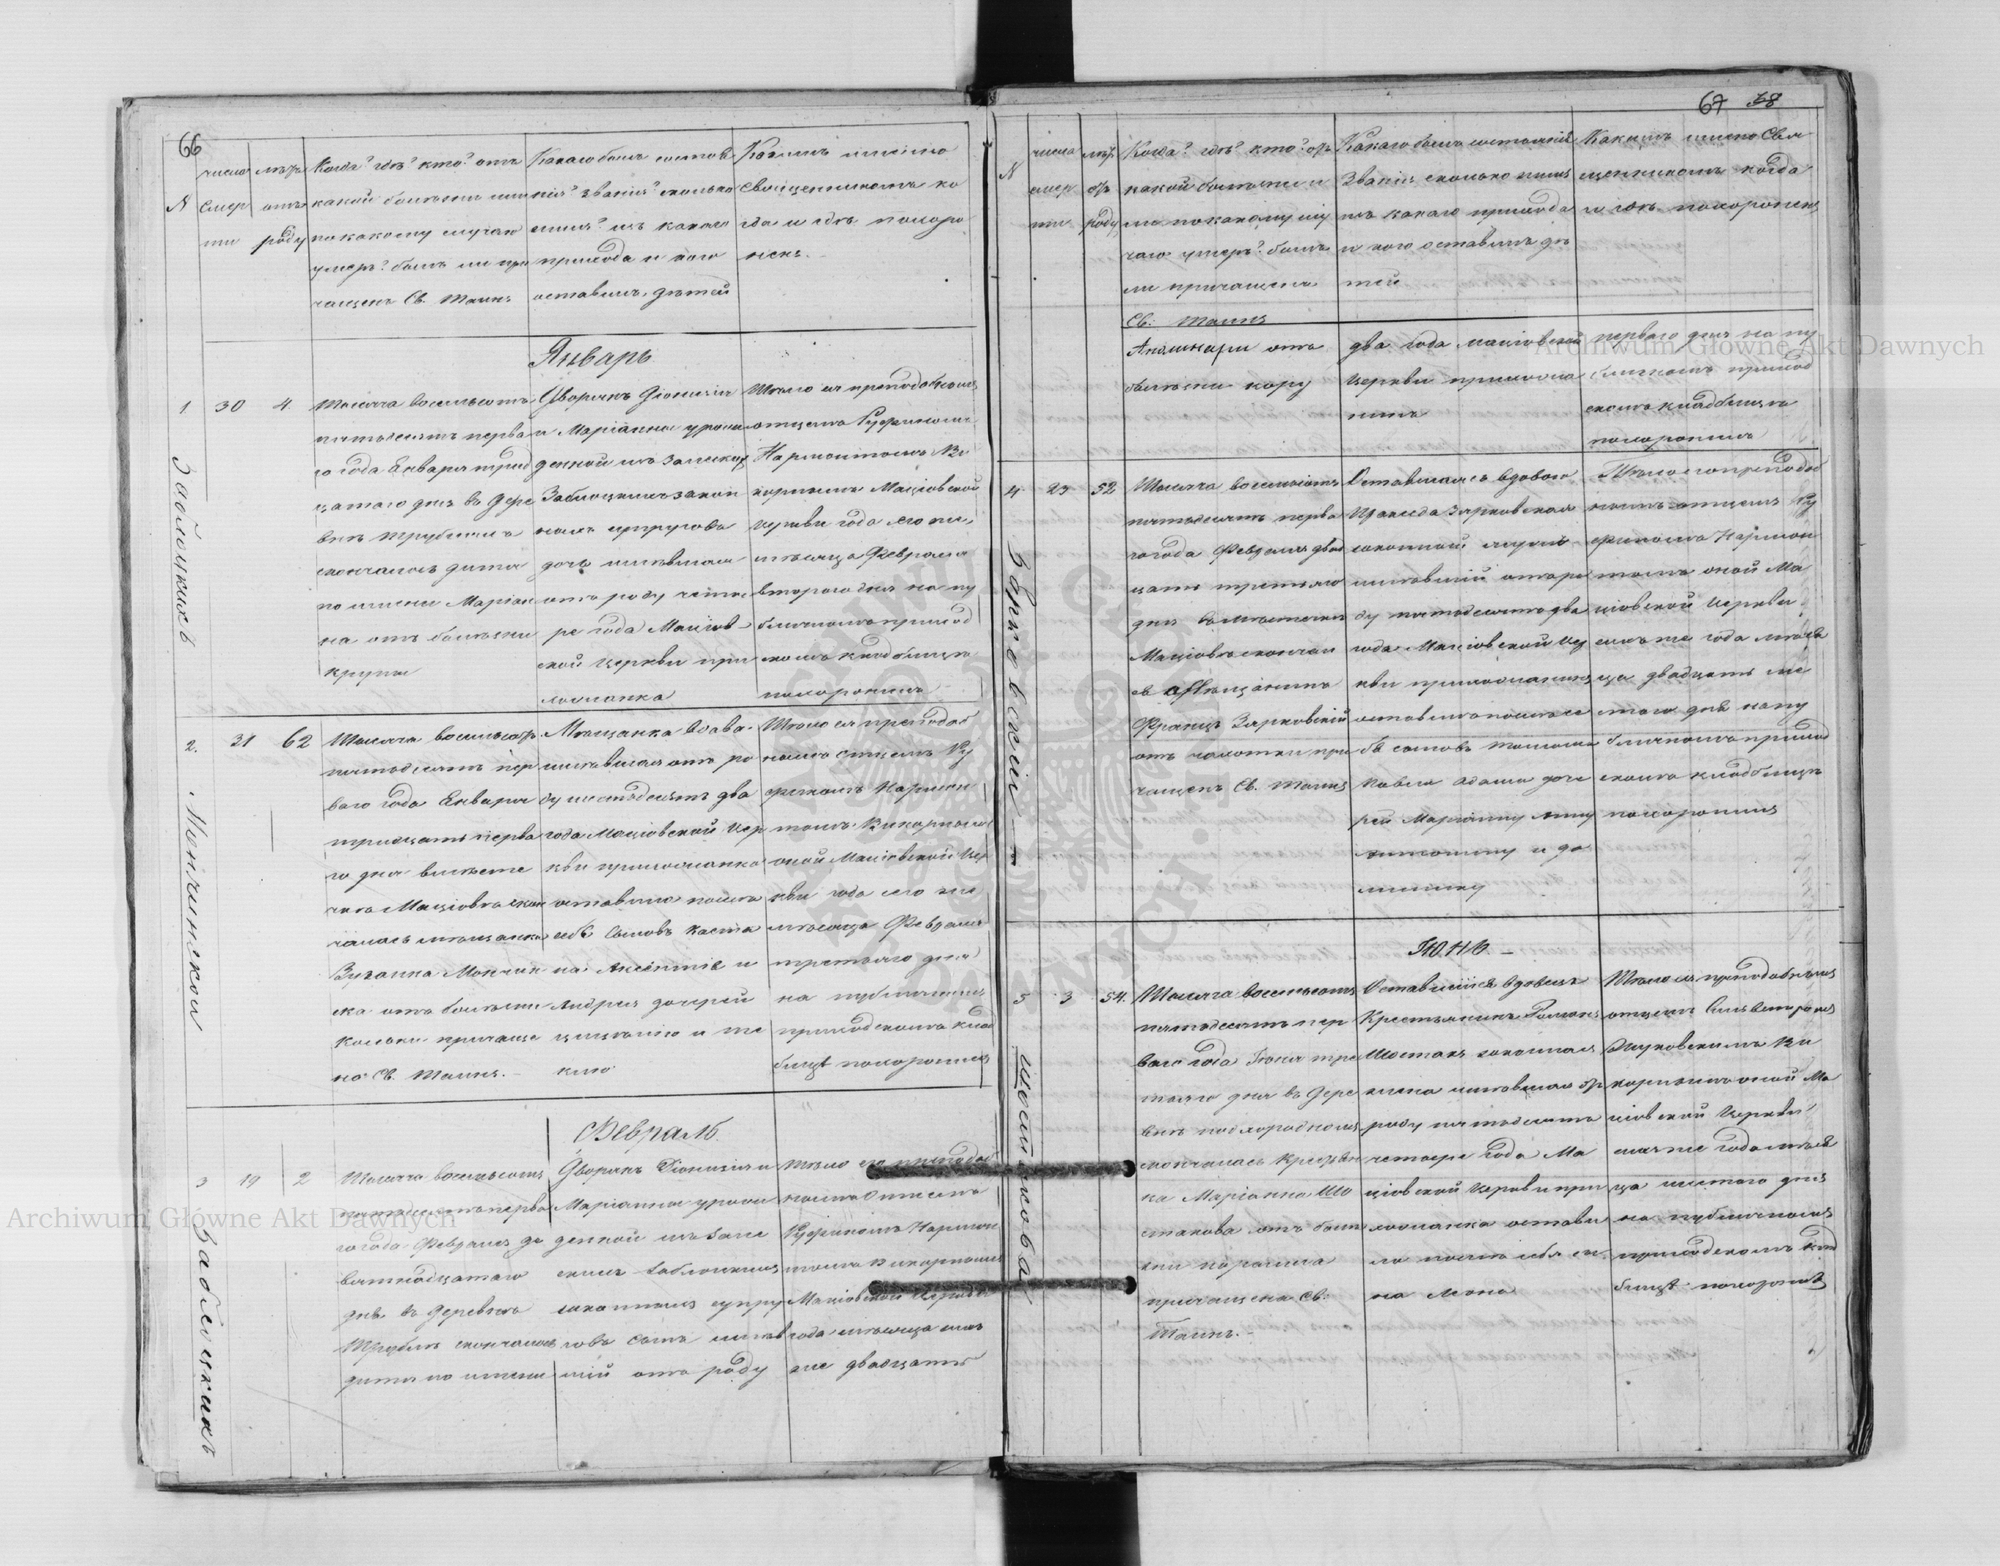 66
N
число смер ти
лѣта отъ роду
Когда? гдѣ? кто? отъ
какой болѣзни или
по какому случаю
умеръ? былъ ли при
чащенъ Св. Таинъ
Какаго былъ состоя
нія? званія? сколько
лѣтъ? изъ какого
прихода и кого
оставилъ дѣтей
Какимъ именно
священникомъ ко
гда и гдѣ похоро
ненъ.
Январь
1 30 4
Заблоцкихъ
Тысяча восемьсотъ
пятьдесятъ перва
го года Января трид
цатаго дня въ дере
внѣ Трубкахъ
скончалось дитя
по имени Маріан
на отъ болѣзни
крупы
Дворянъ Діонисія
и Маріанны урож
денной изъ Залеских
Заблоцкихъ закон
ныхъ супруговъ
дочь имѣвшая
отъ роду четы
ре года Маціов
ской церкви при
хожанка
Тѣло ея преподобнымъ
отцемъ Руфиномъ
Нармонтомъ Ви
карнымъ Маціовской
церкви года сего
мѣсяца Февраля
втораго дня на пу
бличномъ приход
скомъ кладбищѣ
похоронено
2. 31 62
Мончинской
Тысяча восемьсотъ
пятьдесятъ пер
ваго года Января
тридцать перва
го дня въ мѣсте
чкѣ Маціовѣ скон
чалась мѣщанка
Мончин
ска отъ болѣзни
кольки причаще
на Св. Таинъ.
Мѣщанка вдова
имѣвшая отъ ро
ду шестьдесятъ два
года Маціовской цер
кви прихожанка
оставила послѣ
себѣ сыновъ
на и
Андрея дочерей
и те
клю
Тѣло ея преподоб
нымъ отцемъ Ру
финомъ Нармон
томъ Викарным
оной Маціовской цер
кви года сего же
мѣсяца Февраля
третьяго дня
на публичномъ
приходскомъ клад
бищѣ похоронено
Февраль
3 19 2
Заблоцкихъ
Тысяча восемьсотъ
пятьдесятъ перва
го года Февраля де
вятнадцатаго
дня въ деревнѣ
Трубкѣ скончалось
дитя по имени
Дворянъ Діонисія и
Маріанны урож
денной изъ Зале
скихъ Заблоцкихъ
законныхъ супру
говъ сынъ имѣв
шій отъ роду
Тѣло его преподоб
нымъ Отцемъ
Руфиномъ Нармон
томъ Викарнымъ
Маціовской Церкви
года мѣсяца
же двадцать
67 38
N
числа смер ти
лѣт. отъ роду
Когда? гдѣ? кто? отъ
какой болѣзни и
ли по какому слу
чаю умеръ? былъ
ли причащенъ
Св. Таинъ
Какаго былъ состоянія
званія сколько лѣтъ
изъ какаго прихода
и кого оставилъ дѣ
тей
Какимъ именно Свя
щенникомъ когда
и гдѣ похороненъ
Аполинари отъ
болѣзни кору
два года Маціовской
церкви прихожа
нинъ
перваго дня на пу
бличномъ приход
скомъ кладбищѣ
похоронилъ
4 23 52
Зарковскій
Тысяча восемьсотъ
пятьдесятъ перва
го года Февраля двад
цать третьяго
дня въ мѣстечкѣ
Маціовѣ скончал
ся Мѣщанинъ
Францъ Зарковскій
отъ чахотки при
чащенъ Св. Таинъ
Оставшаяся вдовою
Зарковская
законной мужъ
имѣвшій отъ ро
ду пятьдесятъ два
года Маціовской цер
кви прихожанинъ
оставилъ послѣ се
бѣ сыновъ
Павла Адама доче
рей Маріянну Анну
Антонину и До
минику
Тѣло его преподоб
нымъ отцемъ Ру
финомъ Нармон
томъ оной Ма
ціовской Церкви
года мѣся
ца двадцать ше
стаго дня на пу
бличномъ приход
скомъ кладбищѣ
похоронилъ
Іюнь.
5 3 54.
Шостакова
Тысяча восемьсотъ
пятьдесятъ пер
ваго года Іюня тре
тьяго дня въ дере
внѣ подгородномъ
скончалась крестьян
ка Маріанна Шо
стакова отъ болѣ
зни паралича
причащена Св.
Таинъ.
Оставшійся вдовецъ
Крестьянинъ Романъ
Шостакъ законная
жена имѣвшая отъ
роду пятьдесятъ
четыре года Ма
ціовской церкви при
хожанка остави
ла послѣ себя сы
на
Тѣло ея преподобнымъ
отцемъ Сильвестромъ
Жуковскимъ Ви
карнымъ оной Ма
ціовской Церкви
года мѣся
ца шестаго дня
на публичномъ
приходскомъ клад
бищѣ похоронено
Archiwum Główne Akt Dawnych
Archiwum Główne Akt Dawnych